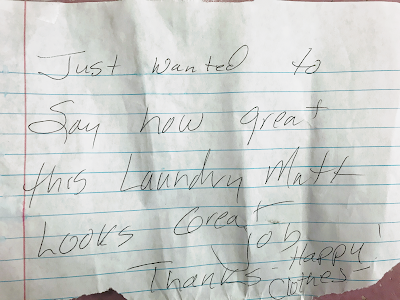 Just wanted to
Say how great
this Laundry Matt
Looks Great
job
Happy!
Thanks - Clothes-